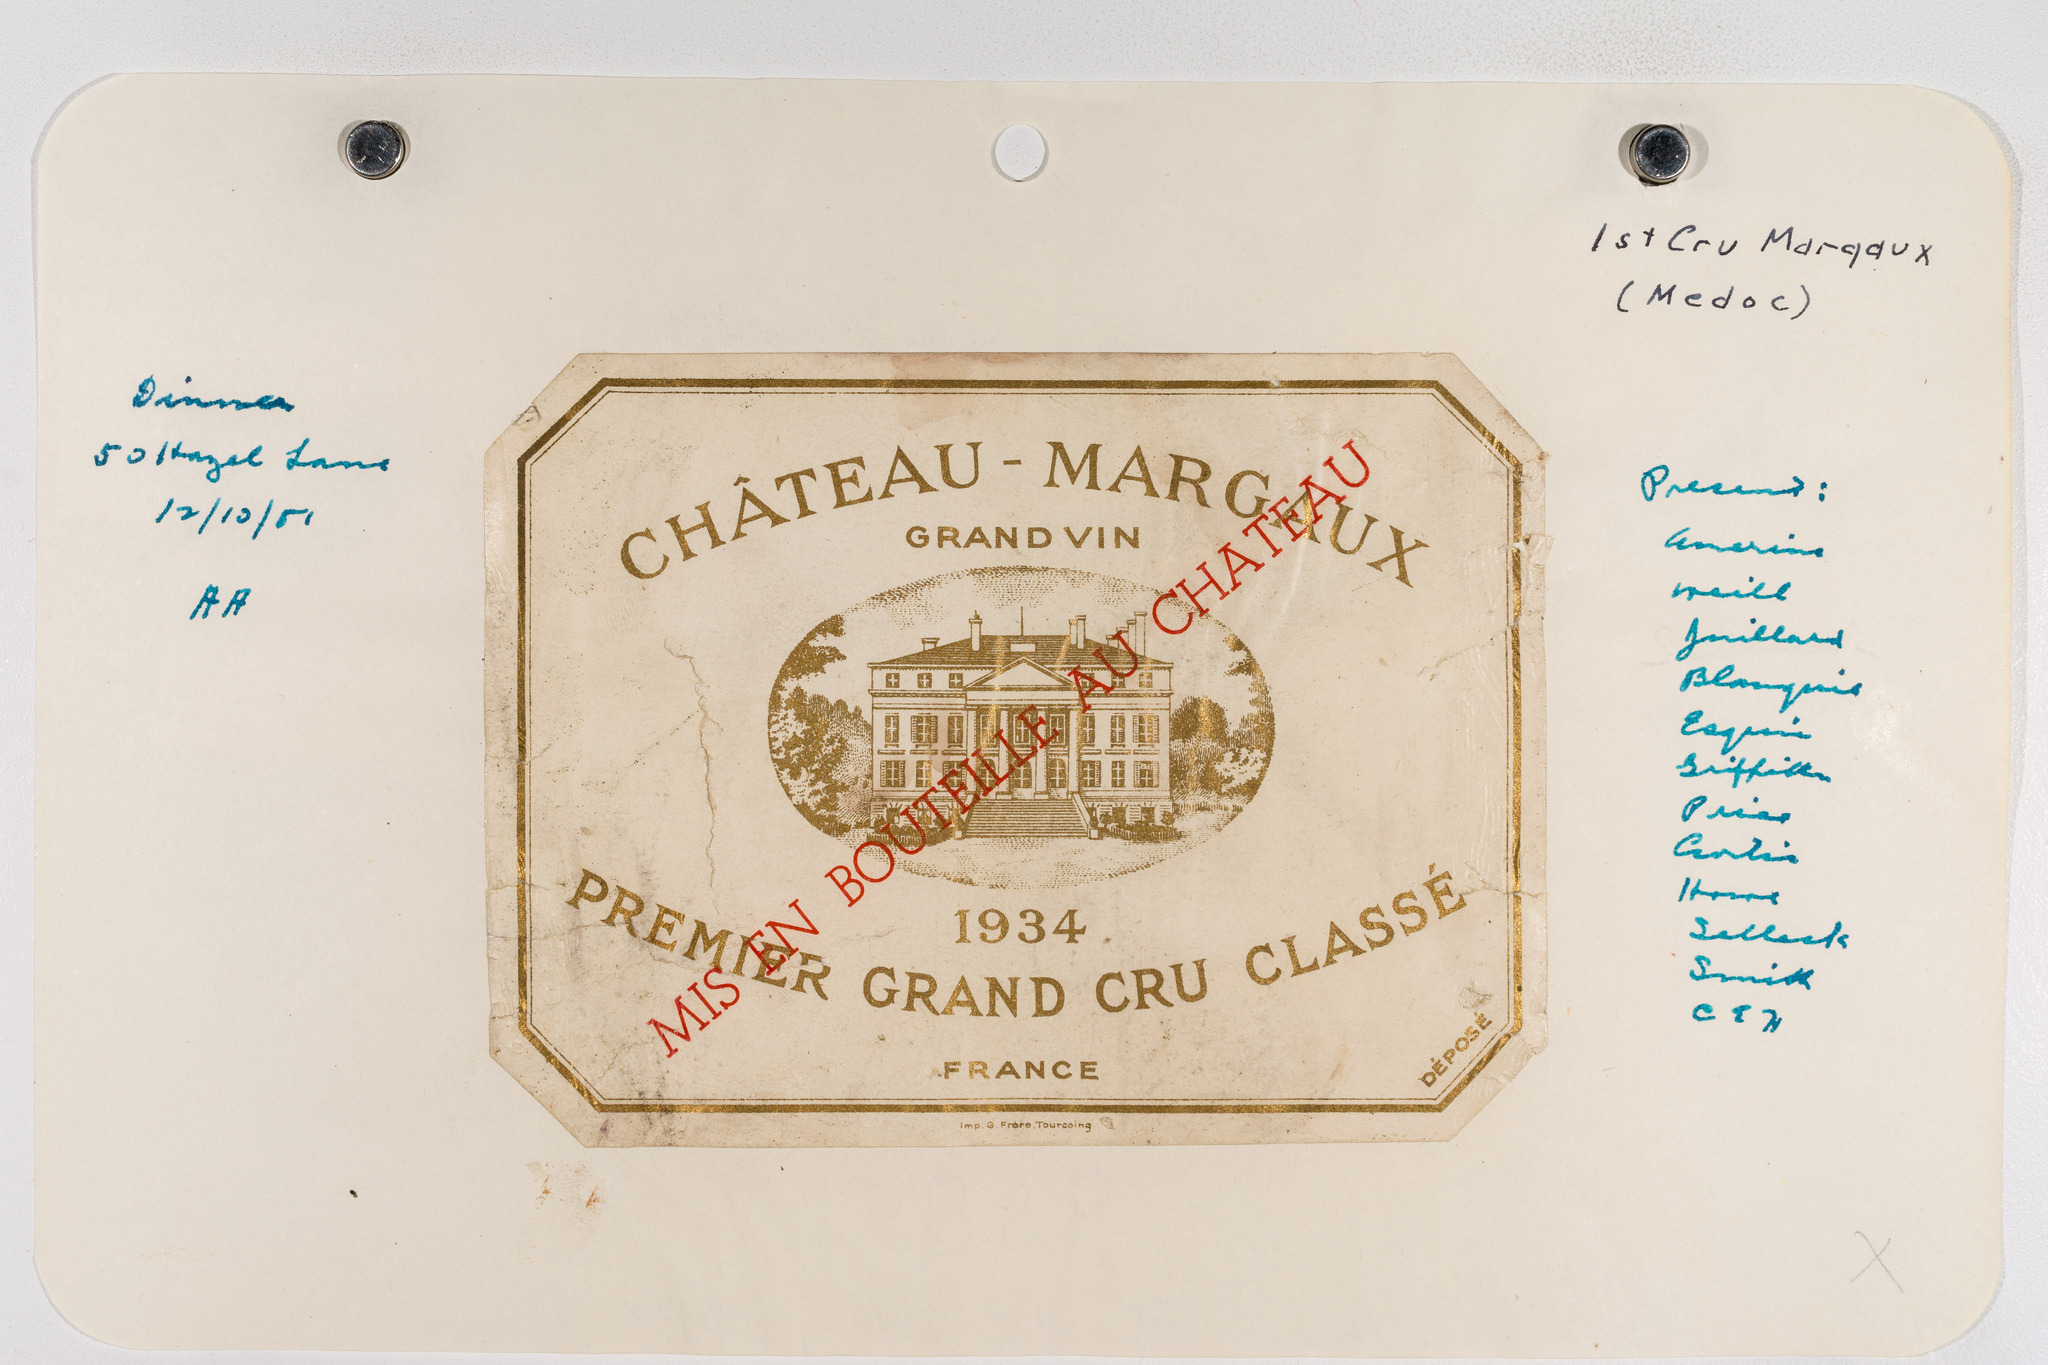 1st Cru Margaux
(Medoc)
Dinner
50 Hazel Lane
12/10/51
AA
CHÂTEAU-MARGAUX
GRAND VIN
MIS EN BOUTEILLE AU CHATEAU
1934
PREMIER GRAND CRU CLASSÉ
FRANCE
DÉPOSÉ
Imp. G. Frère, Tourcoing
Present:
Amerine
Weill
Juillard
Blanquie
Esquin
Griffiths
Price
Cortis
Howe
Selleck
Smith
X